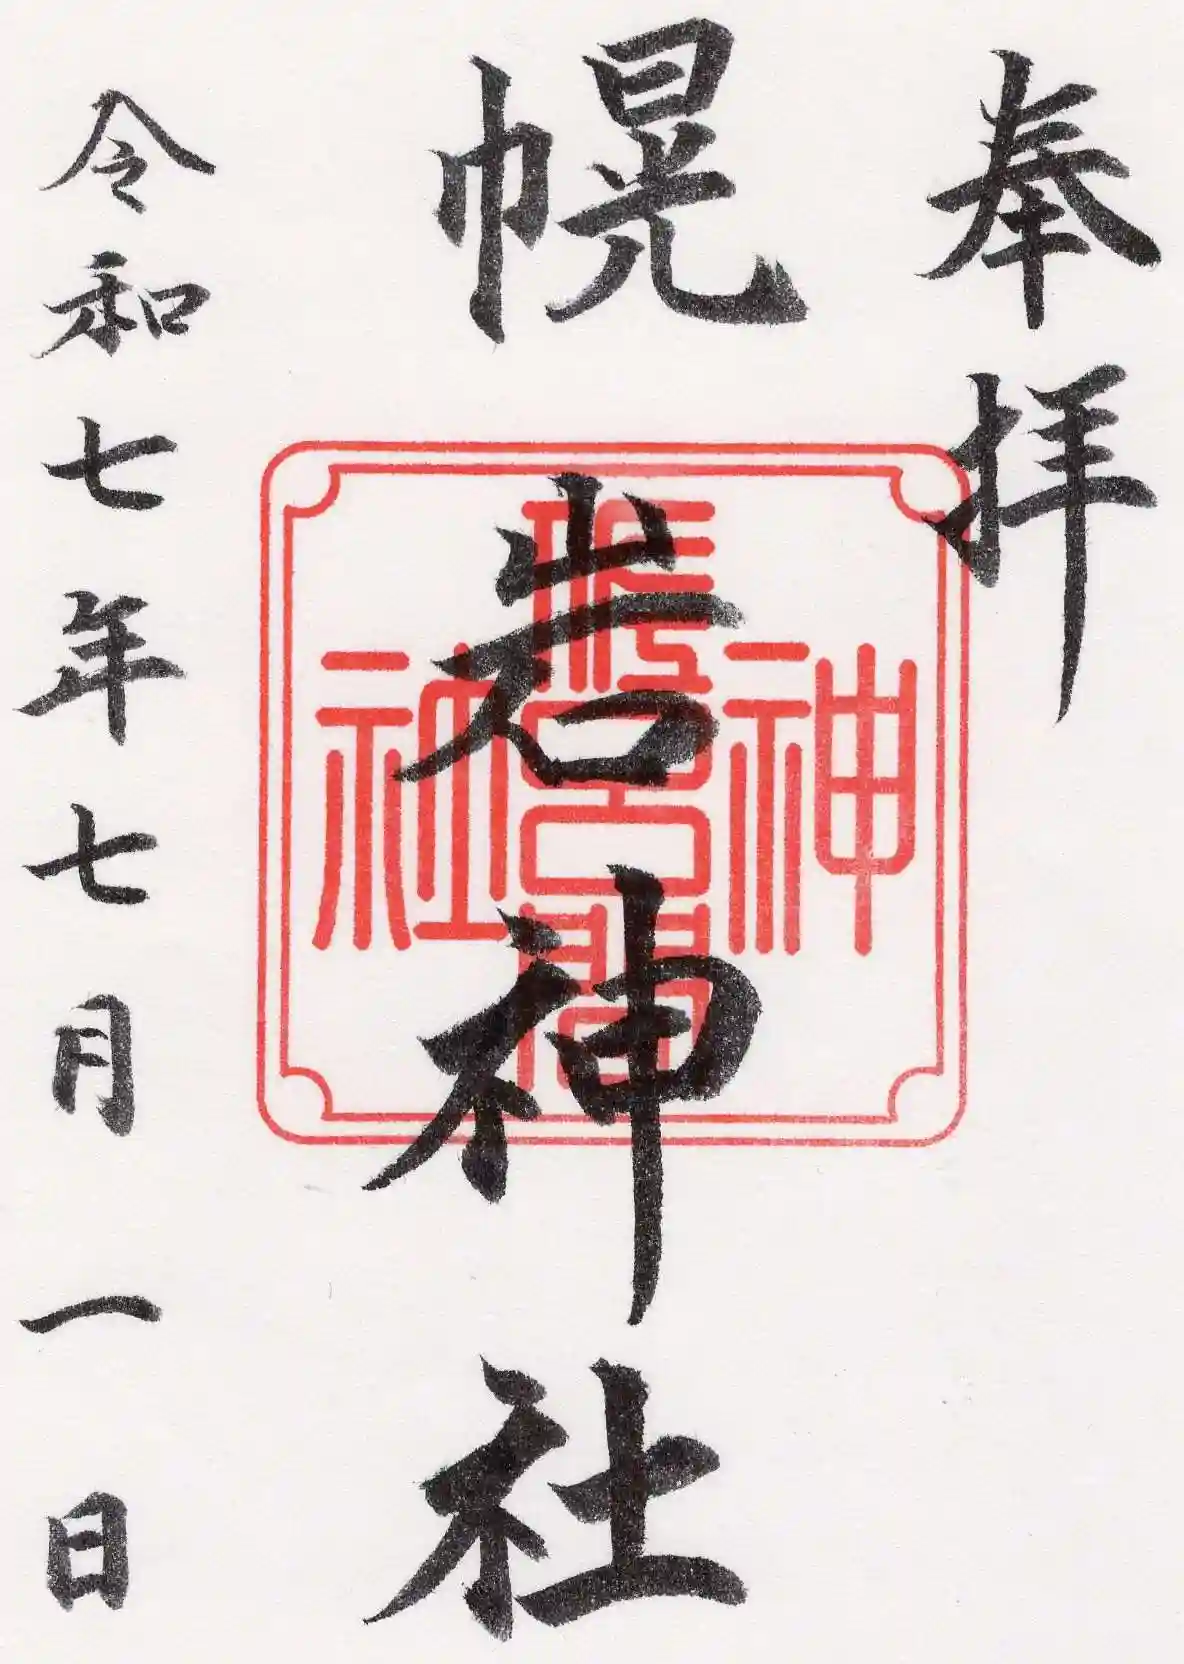 奉拝
幌岩神社
佐呂間神社
令和七年七月一日